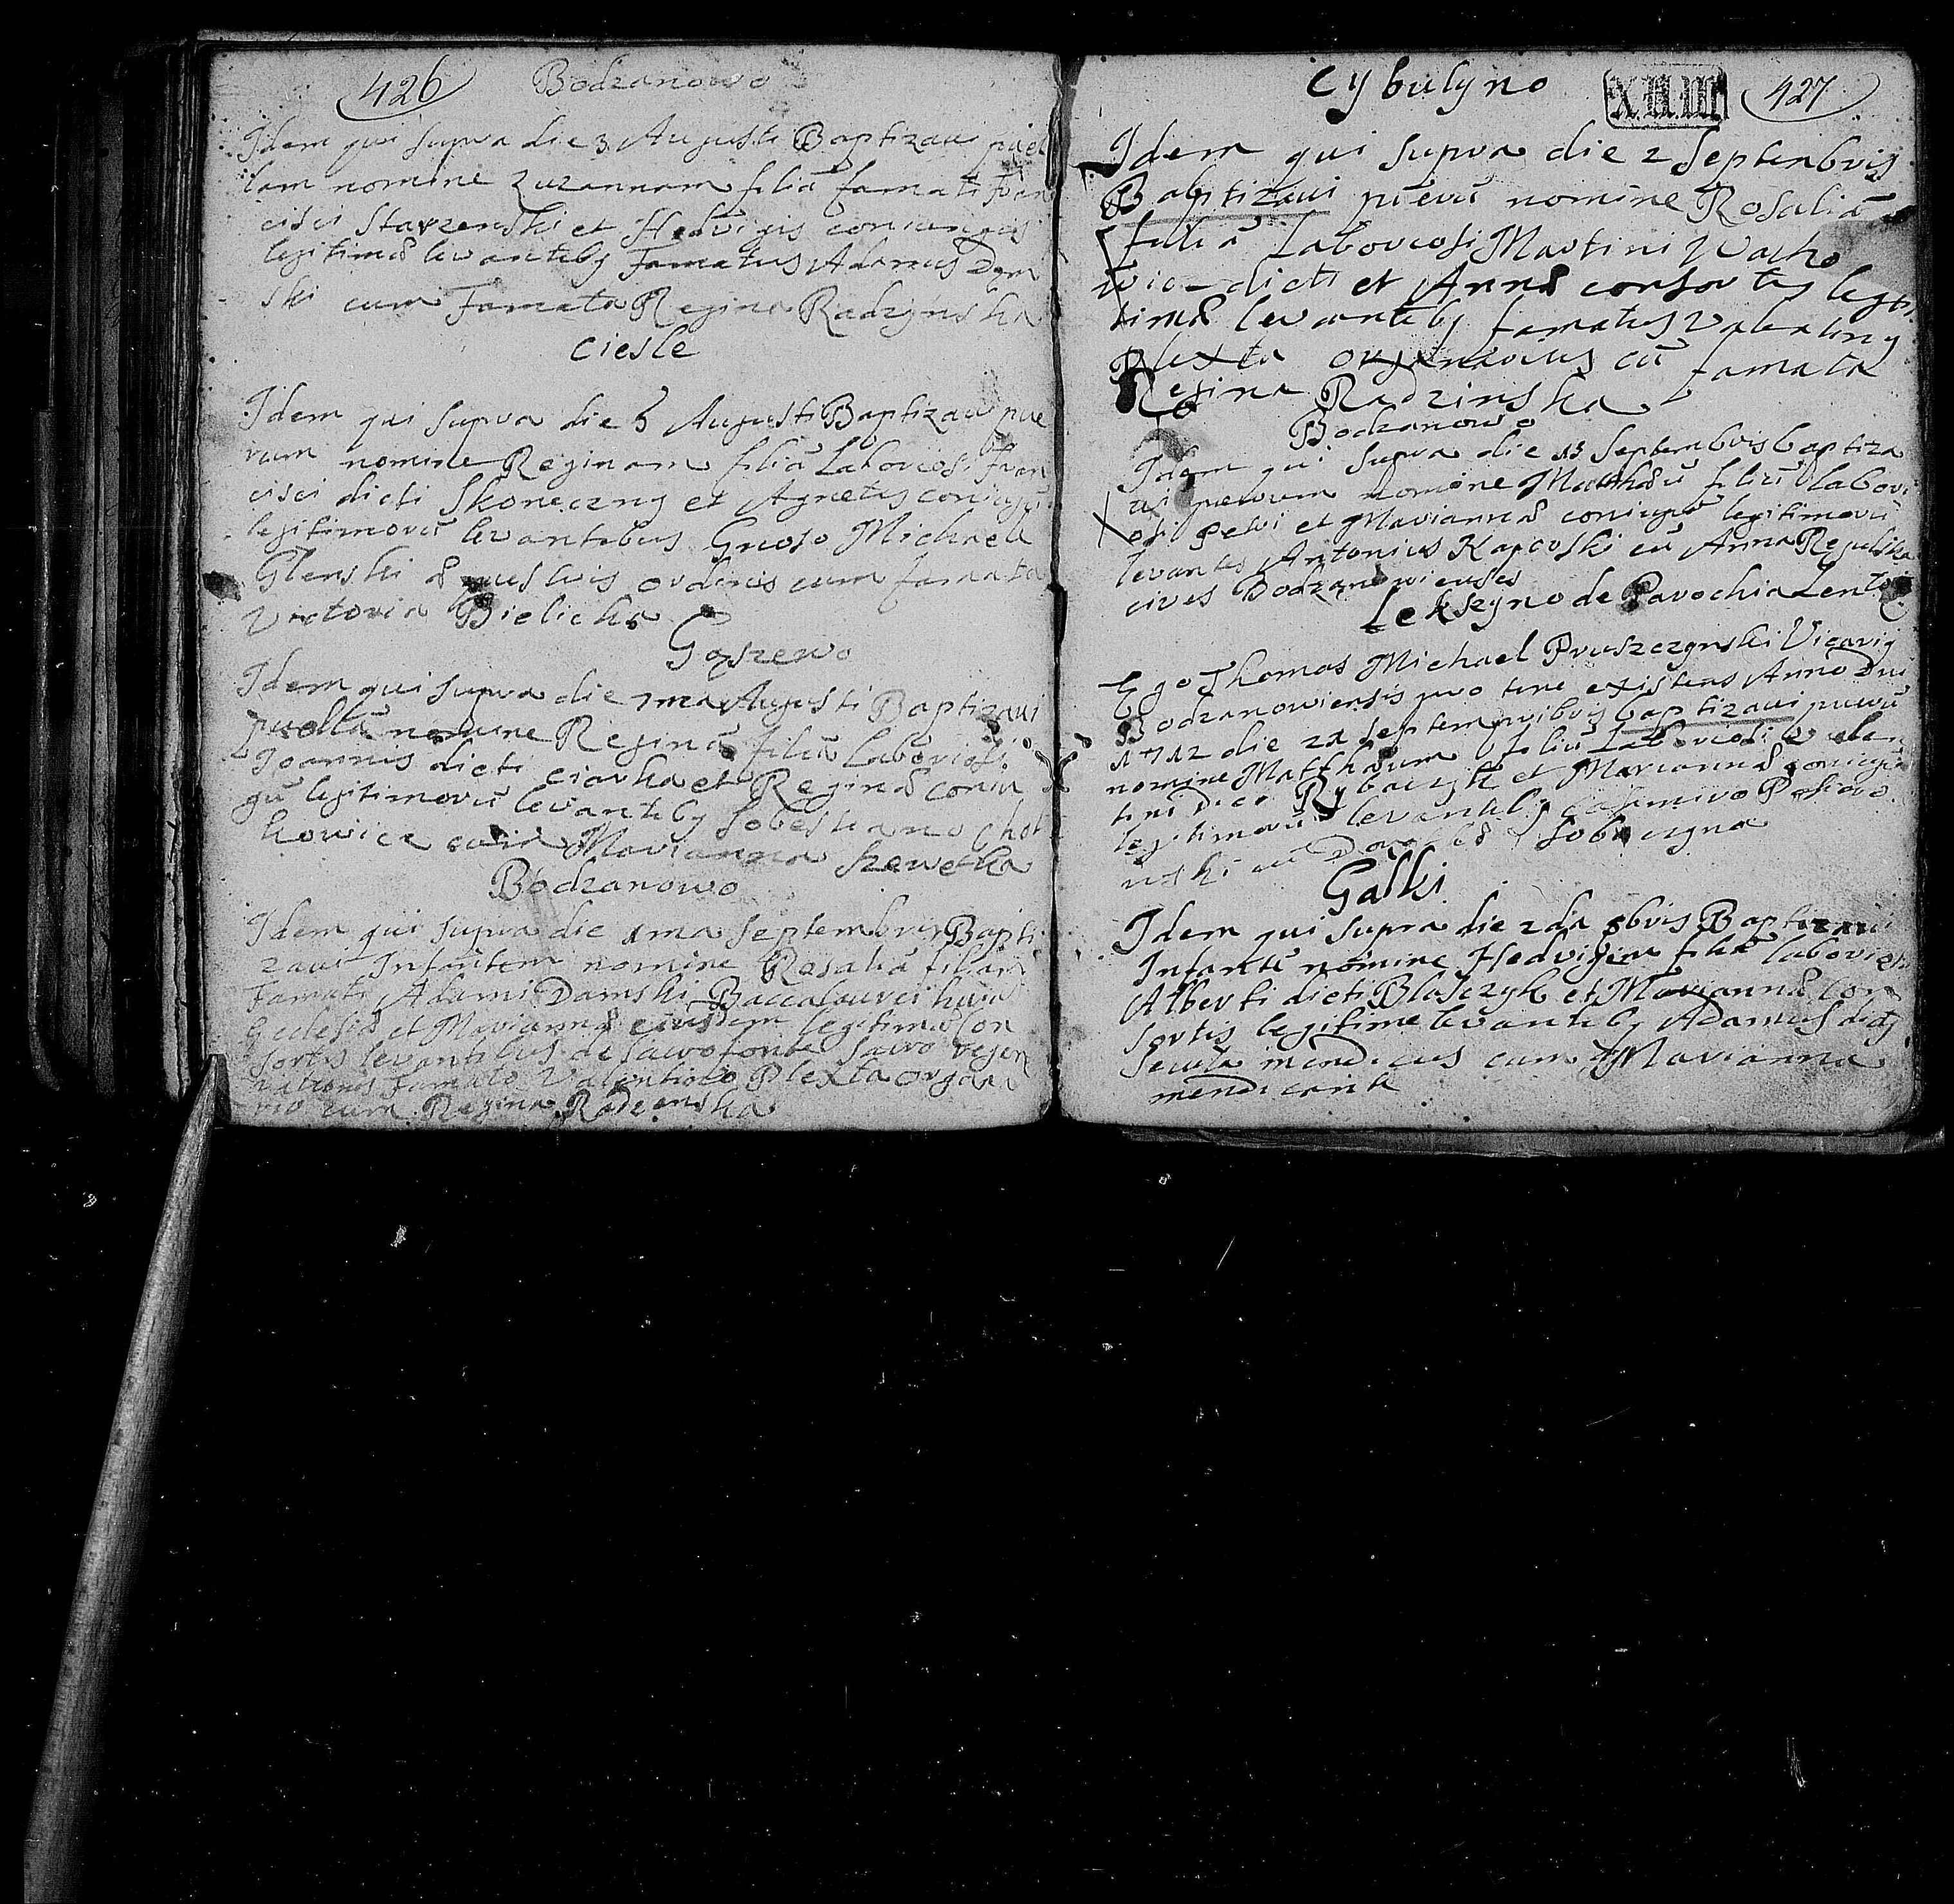 426 Bodzanowo
Idem qui supra die 3 Augusti Baptizaui puel
lam nomine Zuzannam filiā famati Fran
cisci Starzenski et Hedvigis coniungus
legitimæ levantibȝ Famatus Adamus Dam
ski cum Famata Regina Radzynska
Ciesle
Idem qui supra die 5 Augusti Baptizaui pue
rum nomine Reginam filiā Laboriosi Fran
cisci dicti Skoneczny et Agnetis coniugū
legitimorū levantibus Gnoso Michaele
Glenski ordinis cum famata
Victoria Bielicka
Goszewo
Idem qui supra die 7ma Augusti Baptizaui
puellā nomine Reginā filiā Laboriosi
Joannis dicti ciarka et Reginæ coniu
gū legitimorū levantibȝ Sobestiano Chot
kowicz cum Marianna Szewcka
Bodzanowo
Idem qui supra die 1ma Septembris Bapti
zaui Infantem nomine Rosaliā filiam
Famati Adami Damski Baccalaurei huiȝ
Ecclesiæ et Mariannæ eiusdem legitimæ con
sortis levantibus de sacro fonte sacro regen
rationis Famato Valentino Plexta organ
rio cum Regina Radzenska
Cybulyno X.II.III 427
Idem qui supra die 2 Septembris
Babptizaui puerū nomine Rosaliā
filiā Laboriosi Martini
dicti et Annæ consortis legi
timæ levantibȝ famatus Valentinȝ
Plexta organarius cū famata
Regina Radzinska
Bodzanowo
Idem qui supra die 13 Septembris baptiza
ui puerum nomine Matthæū filiū labori
osi Petri et Mariannæ coniugū legitimorū
levantes Antonius Kapcoski cū Anna Regulska
cives Bodzanowienses
Lekszyno de Parochia
Ego Thomas Michael Pruszczynski Vicariȝ
Bodzanowiensis pro tune existens Anno Dni
1712 die 21 septemnibris baptizaui puerū
nomine Matthæum filiū Laboriosi Valen
tini dicti Rybaczyk et Mariannæ coniugū
legitimorū levantibȝ Casimiro
nski cū
Galki
Idem qui supra die 2da 8bris Baptizaui
Infantē nomine Hedvigem filiā laboriosi
Alberti dicti Blasczyk et Mariannæ con
sortis legitime levantibȝ Adamus dictȝ
Secula mendicus cum Marianna
mendicant